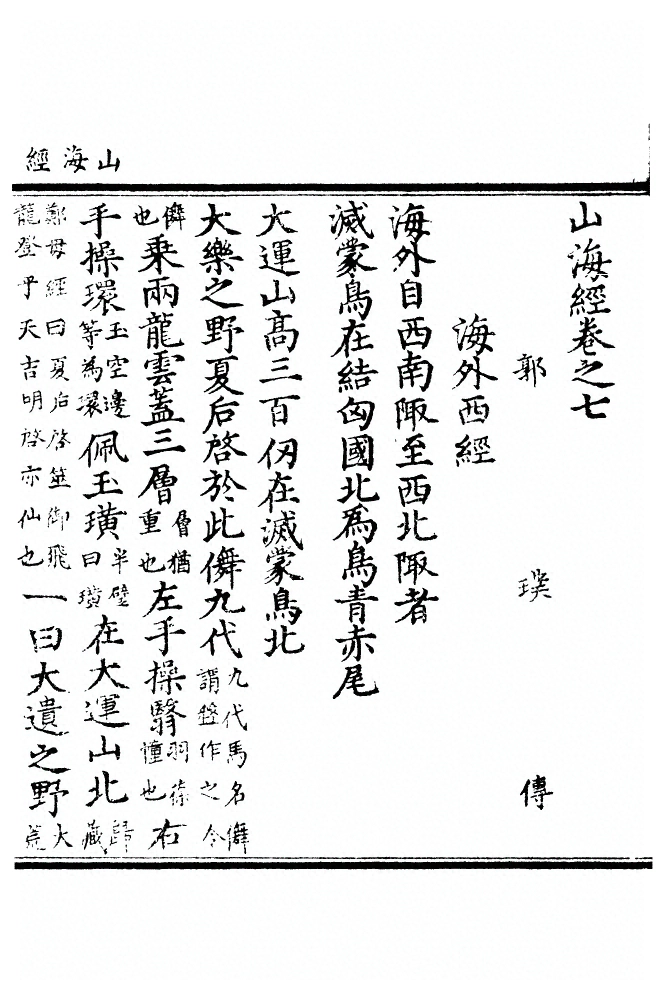 山海經
山海經卷之七
郭璞傳
海外西經
海外自西南陬至西北陬者
滅蒙鳥在結匈國北爲鳥青赤尾
大運山高三百仞在滅蒙鳥北
大樂之野夏后啓於此儛九代九代馬名儛謂盤作之令
儛也乘兩龍雲蓋三層層猶重也左手操翳羽葆幢也右
手操環玉空邊等為環佩玉璜半璧曰璜在大運山北歸藏
鄭母經曰夏后啓筮御飛龍登于天吉明啓亦仙也一曰大遺之野大荒